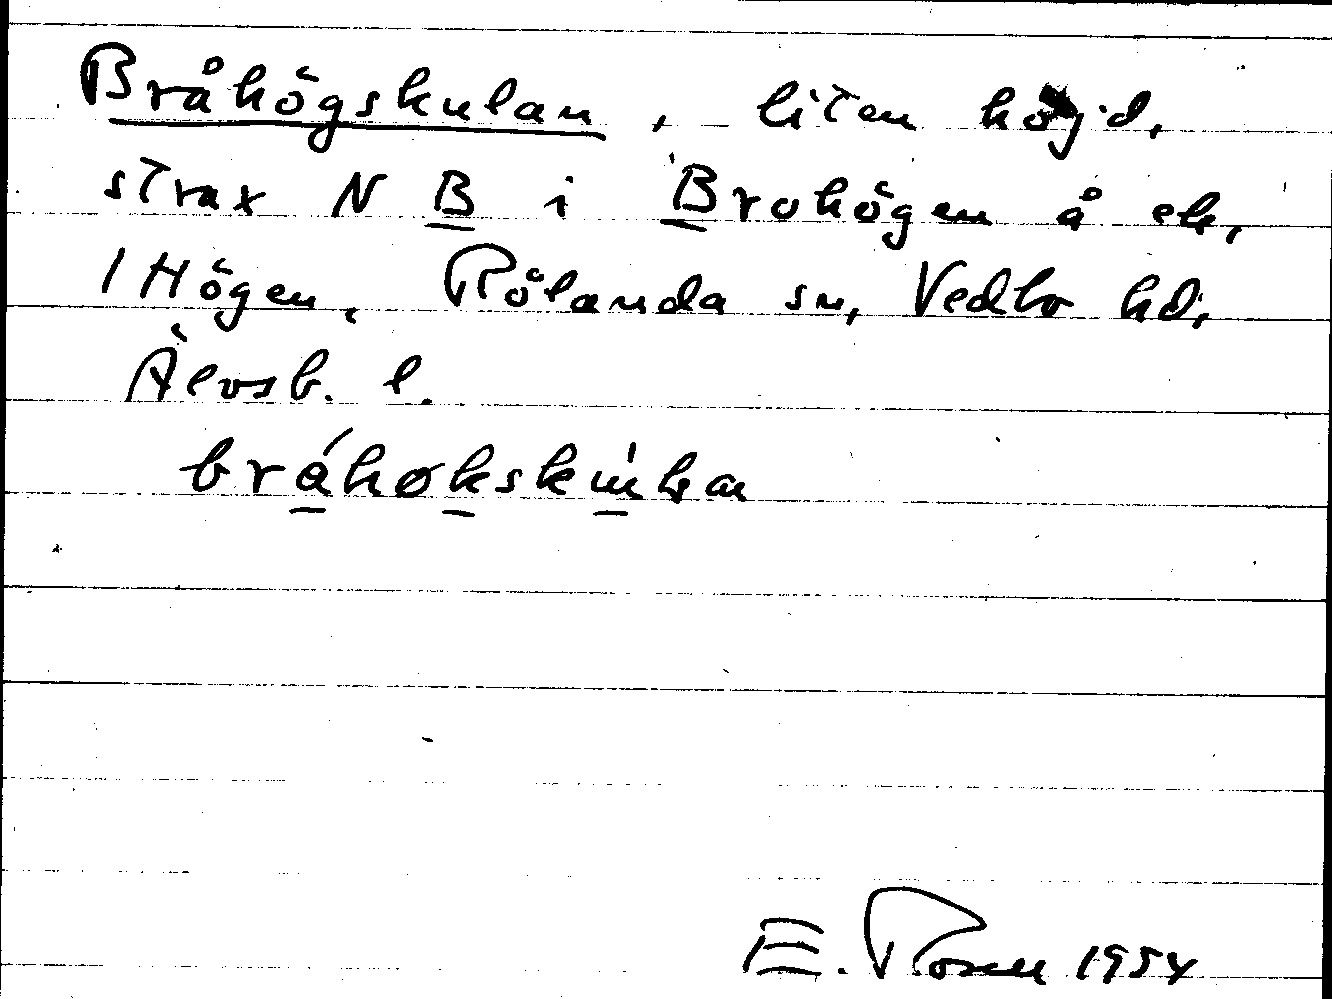 Bråhögskulan, liten höjd,
strax N B i Brohögen å ek,
1 Högen, Rölanda sn, Vedbo hd,
Älvsb. l.
E. Rosen 1954